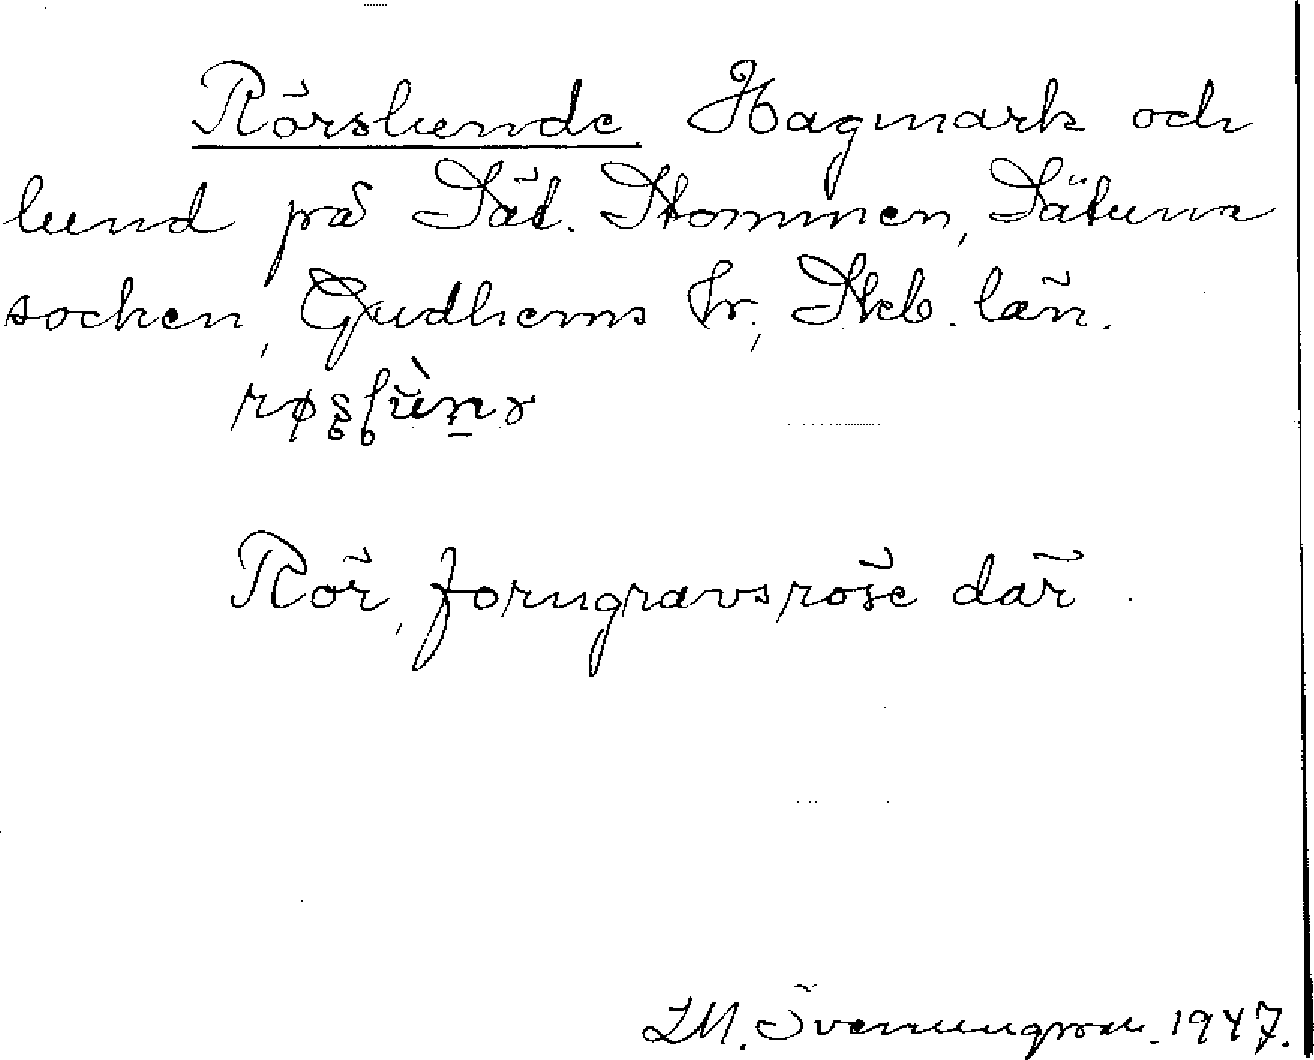 Rörslunde Hagmark och
lund på Sät. Stommen, Sätuna
socken, Gudhems hr., Skb. län.
Rör, forngravsröse där.
L.M. Svenungsson. 1947.